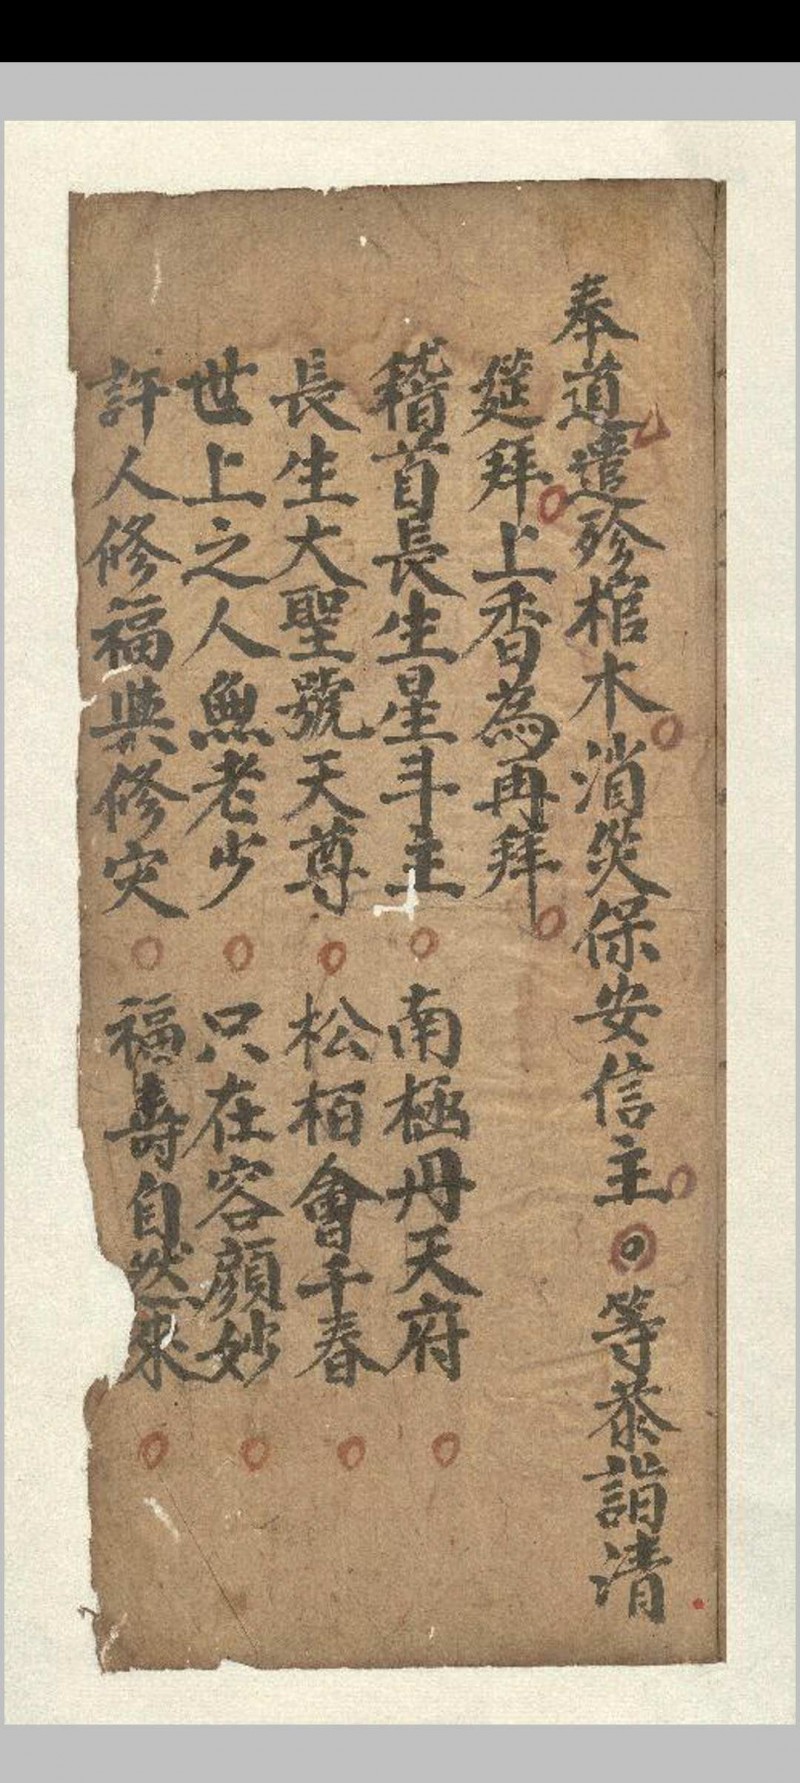 奉道遣殄棺木消災保安信主○等恭詣清
筵拜上香為再拜
稽首長生星斗主○南極丹天府○
長生大聖號天尊○松栢會千春○
世上之人無老少○只在容顔妙○
許人修福與修灾○福壽自然來○